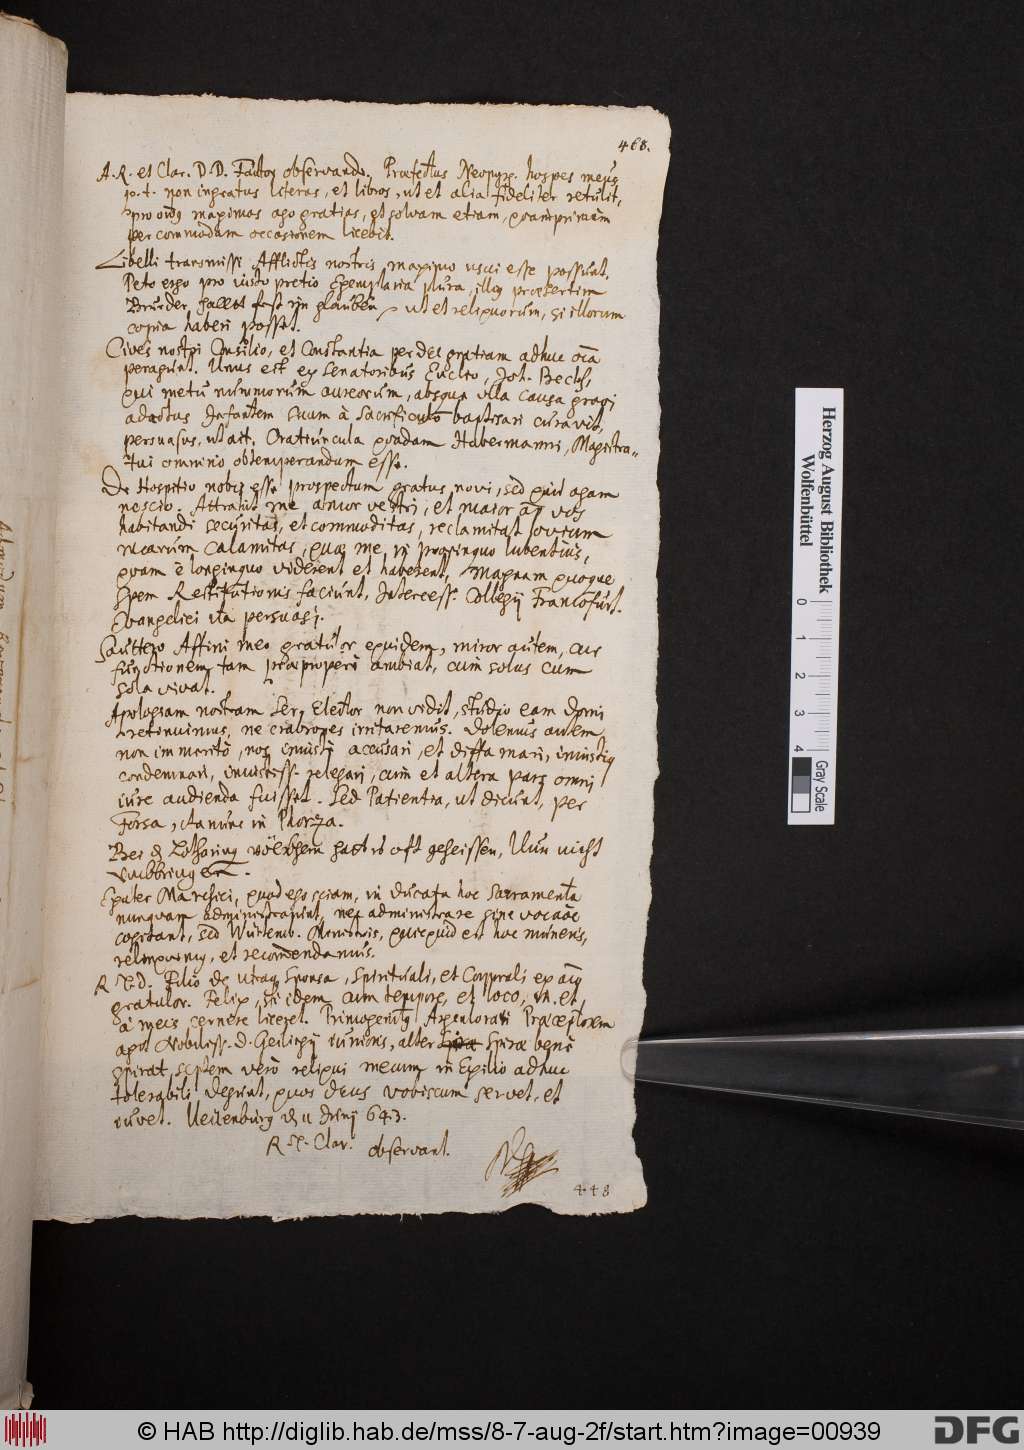 468.
A. R. et Clar. D. D. Fautor observande. Præfectus Neopyrg. hospes meus
p. t. non ingratus literas, et libros, ut et alia fideliter retulit,
pro maximas ago gratias, et solvam etiam, quamprimum
per commodam occasionem licebit.
Libelli transmissi Afflictis nostris, maximo usui esse possunt,
Peto ergo pro iusto pretio Exemplaria plura, præsertim
Brüeder fast im glauben ut et reliquorum, si illorum
copia haberi posset.
Cives nostri Consilio, et Constantia per dei gratiam adhuc
peragunt. Unus est ex Senatoribus, Joh.
qui metu nummorum aureorum, absque ulla causa
Infantem suum à Sacrificulo baptisari curavit,
persuasus, ut ait, Oratiuncula quadam Habermanni, Magistra-
tui omnino obtemperandum esse.
De Hospitio nobis esse prospectum gratus novi, sed quid agam
nescio. me amor vestri, et maior vos
habitandi securitas, et commoditas, reclamitat ovium
mearum calamitas, quæ me in propinquo lubentius,
quam è longinquo viderent et haberent, Magnam quoque
spem Restitutionis faciunt, Intercess. Collegij Francofurt.
Evangelici ita persuasi.
Affini meo gratulor equidem, miror autem, cur
functionem tam præproperè ambiat, cum solus cum
sola vivat.
Apologiam nostram Ser. Elector non vidit, studio eam domi
retinuimus, ne crabrones irritaremus. Dolemus autem
non immeritò, nos iniustè accusari, et diffamari, iniustius
condemnari, iniustiss. relegari, cum et altera pars omni
iure audienda fuisset. Sed Patientia, ut dicunt, per
Forsa, in
Bei oft geheissen, Nun nicht

quod ego sciam, in Ducatu hoc Sacramenta
nunquam administrarunt, nec administrare sine
cogitant, sed Würtemb. Ministris, quicquid est hoc muneris,
relinquimus, et recommendamus.
Filio de Sponsa, Spirituali, et Corporali ex
gratulor. Felix, si idem cum tempore, et loco, et
à meis cernere liceret. Primogenitus Præceptorem
apud Nobiliss. D. iunioris, alter Spiræ benè
spirat, septem verò reliqui mecum in Exilio adhuc
tolerabili degunt, quos deus vobiscum servet, et
iuvet. 11 Junij 643.
Clar. observant.
448
Herzog August Bibliothek
Wolfenbüttel
0 1 2 3 4
Gray Scale
© HAB http://diglib.hab.de/mss/8-7-aug-2f/start.htm?image=00939
DFG